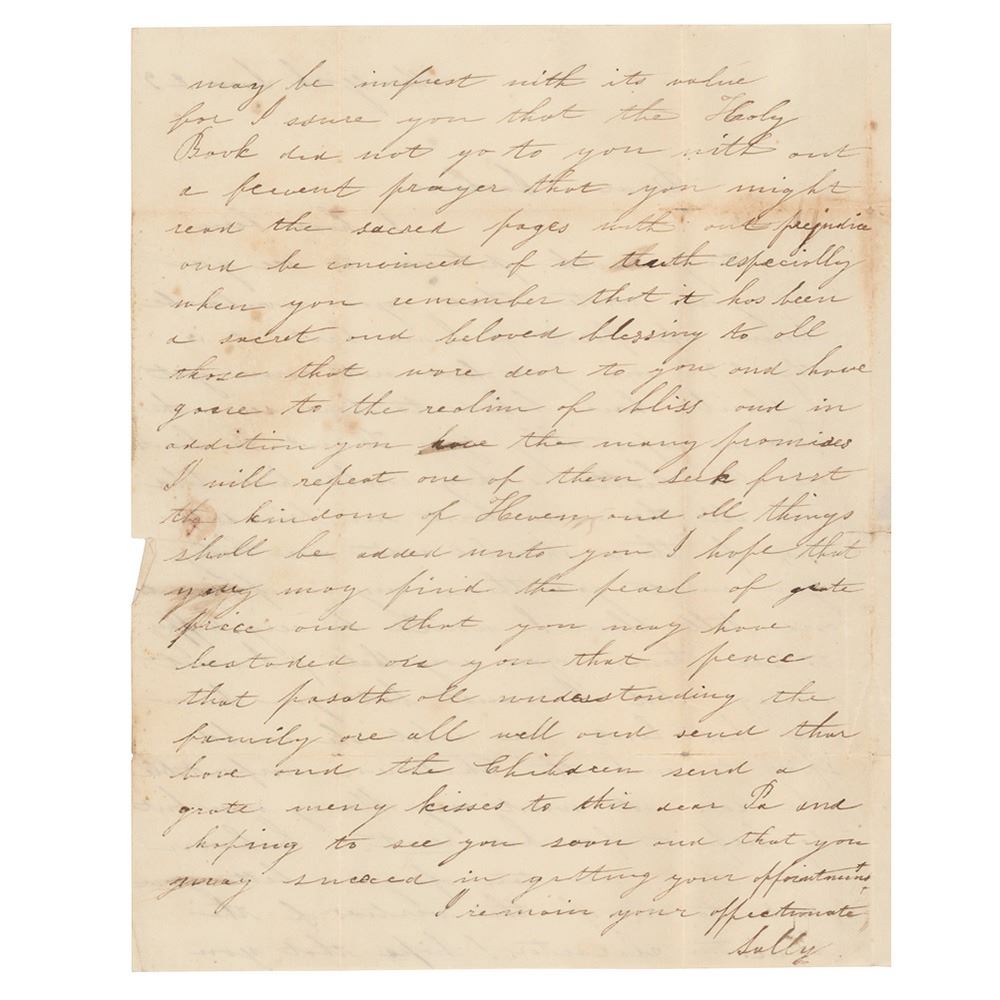 may be imprest with its value
for I ssure you that the Holy
Book did not go to you with out
a fervent prayer that you might
read the sacred pages with out prejudice
and be convinced of it truth especially
when you remember that it has been
a sacret and beloved blessing to all
those that ware dear to you and have
gone to the realim of bliss and in
addition you have the many promises
I will repeat one of them seek first
the kindom of Heven and all things
shall be added unto you I hope that
you may find the pearl of grate
price and that you may have
bestoded on you that peace
that pasath all understanding the
family are all well and send thar
love and the Children send a
grate meny kisses to thir dear Pa and
hoping to see you soon and that you
may succeed in getting your appointment
I remain your affectionate
Sally